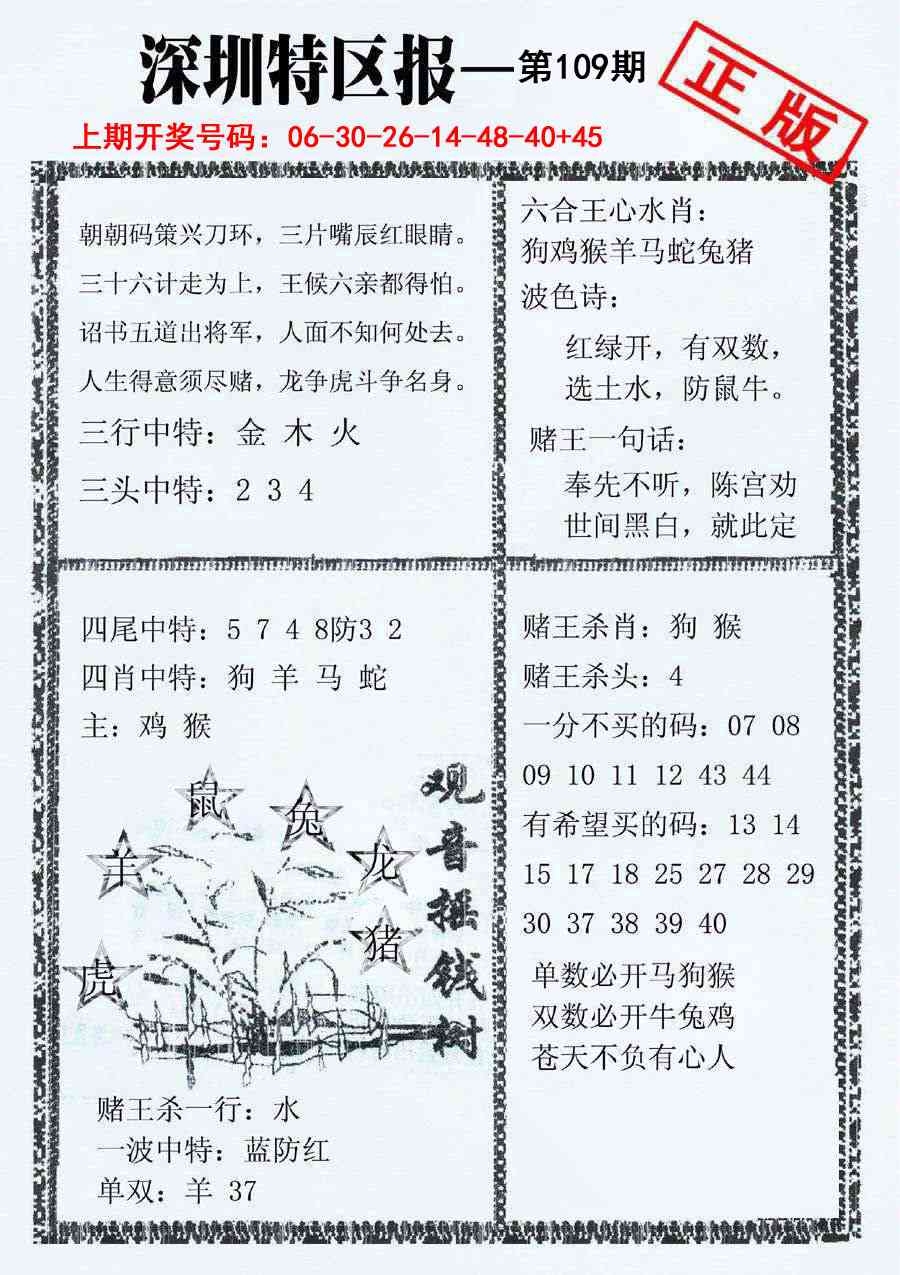 深圳特区报—第109期
正版
上期开奖号码：06-30-26-14-48-40+45
朝朝码策兴刀环，三片嘴辰红眼睛。
三十六计走为上，王候六亲都得怕。
诏书五道出将军，人面不知何处去。
人生得意须尽赌，龙争虎斗争名身。
三行中特：金 木 火
三头中特：2 3 4
六合王心水肖：
狗鸡猴羊马蛇兔猪
波色诗：
红绿开，有双数，
选土水，防鼠牛。
赌王一句话：
奉先不听，陈宫劝
世间黑白，就此定
四尾中特：5 7 4 8防3 2
四肖中特：狗 羊 马 蛇
主：鸡 猴
鼠
兔
羊
龙
猪
虎
观音摇钱树
赌王杀一行：水
一波中特：蓝防红
单双：羊 37
赌王杀肖：狗 猴
赌王杀头：4
一分不买的码：07 08
09 10 11 12 43 44
有希望买的码：13 14
15 17 18 25 27 28 29
30 37 38 39 40
单数必开马狗猴
双数必开牛兔鸡
苍天不负有心人